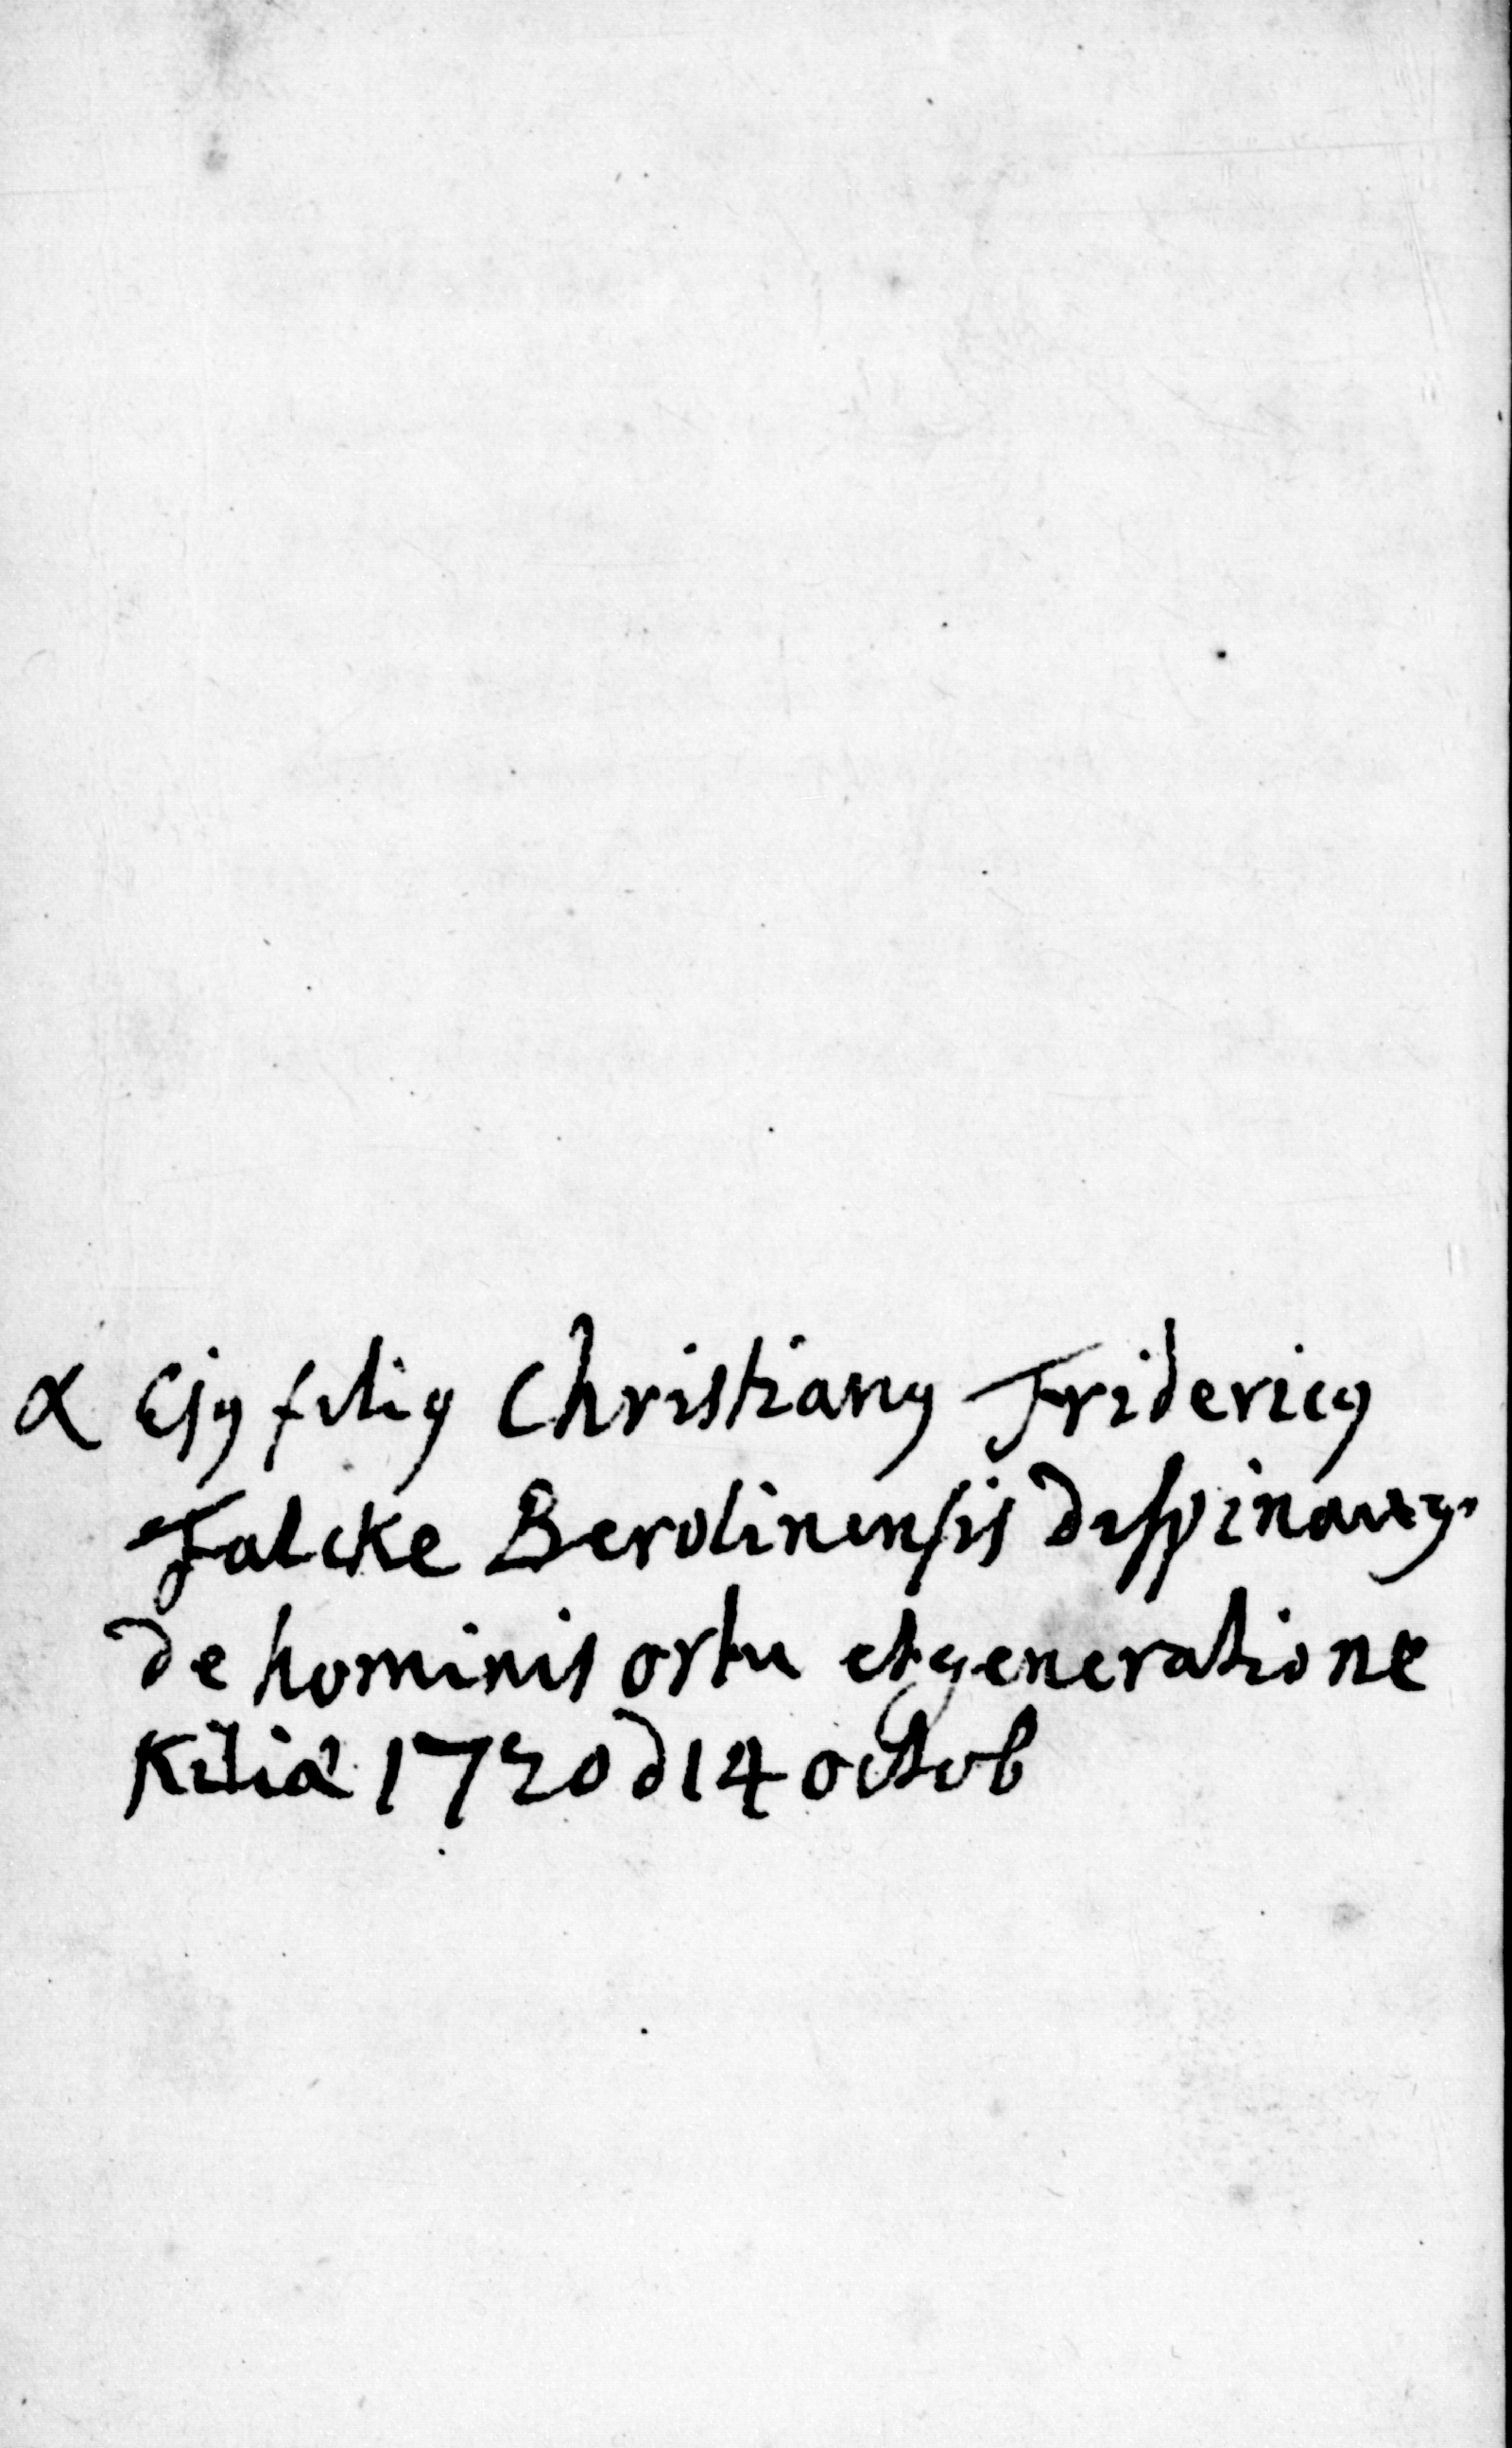 α Ejꝰ filiꝰ Christianꝰ Fridericꝰ
Falcke Berolinensis
de hominis ortu et generatione
Kiliæ 1720 d 14 octob